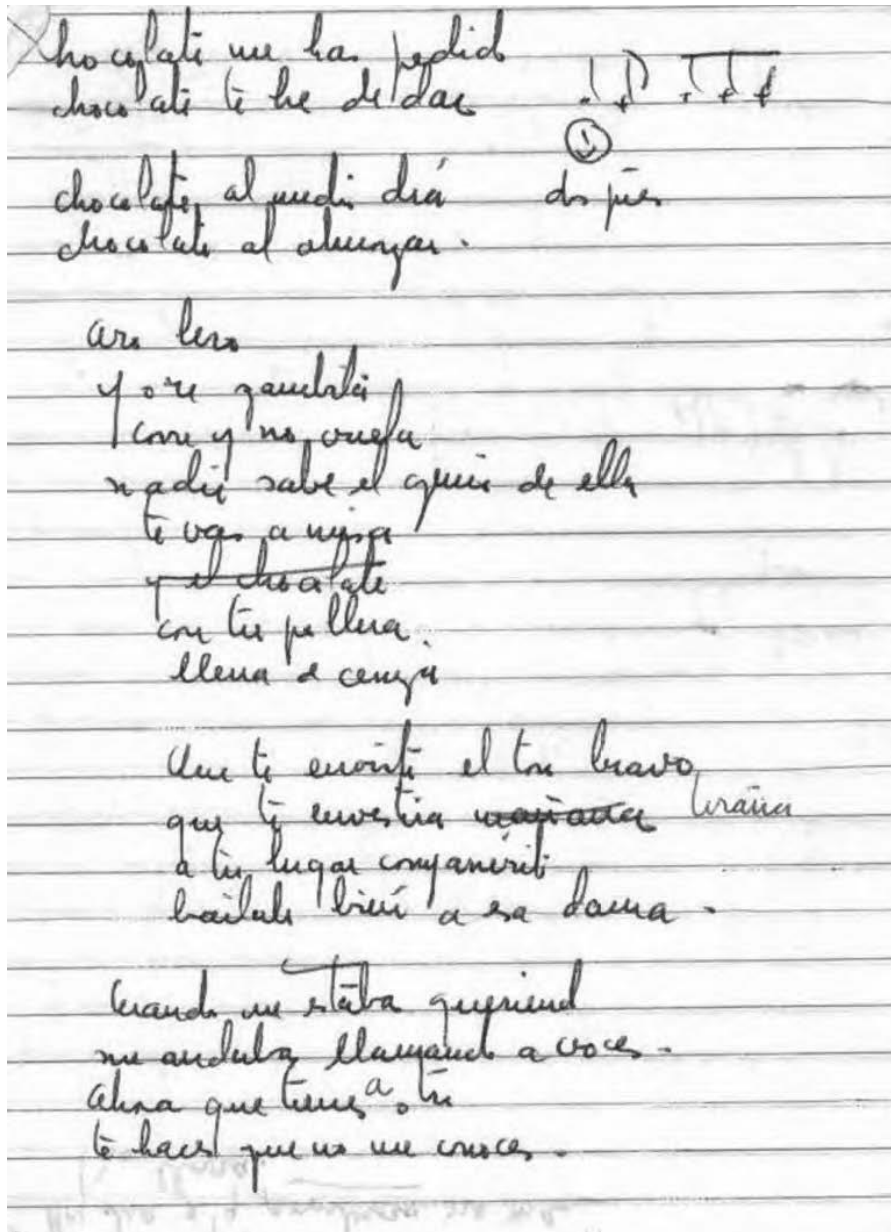 Chocolate me has pedid
chocolate te he de dar
chocolate al medio diá dos pies
chocolate al almorzar.
aro lero
y ore zambita
corre y no vuela
nadie sabe el quien de ella
te vas a misa
y el chocolate
con tu pollera
llena e ceniza
Que te envista el toro bravo
que te envestira mañana
a tu lugar compañerito
bailale bien a esa dama.
Cuando me estaba queriend
me andaba llamando a voces.
Ahora que tienes a otro
te haces que no me conoces.